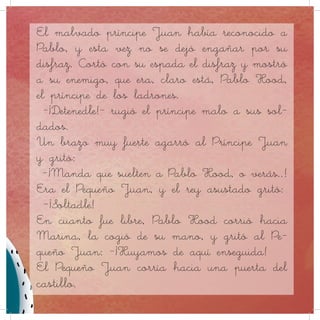 El malvado príncipe Juan había reconocido a
Pablo, y esta vez no se dejó engañar por su
disfraz. Cortó con su espada el disfraz y mostró
a su enemigo, que era, claro está, Pablo Hood,
el príncipe de los ladrones.
-¡Detenedle!- rugió el príncipe malo a sus sol-
dados.
Un brazo muy fuerte agarró al Príncipe Juan
y gritó:
-¡Manda que suelten a Pablo Hood, o verás..!
Era el Pequeño Juan, y el rey asustado gritó:
-¡Soltadle!
En cuanto fue libre, Pablo Hood corrió hacia
Marina, la cogió de su mano, y gritó al Pe-
queño Juan: -¡Huyamos de aquí enseguida!
El Pequeño Juan corría hacia una puerta del
castillo.